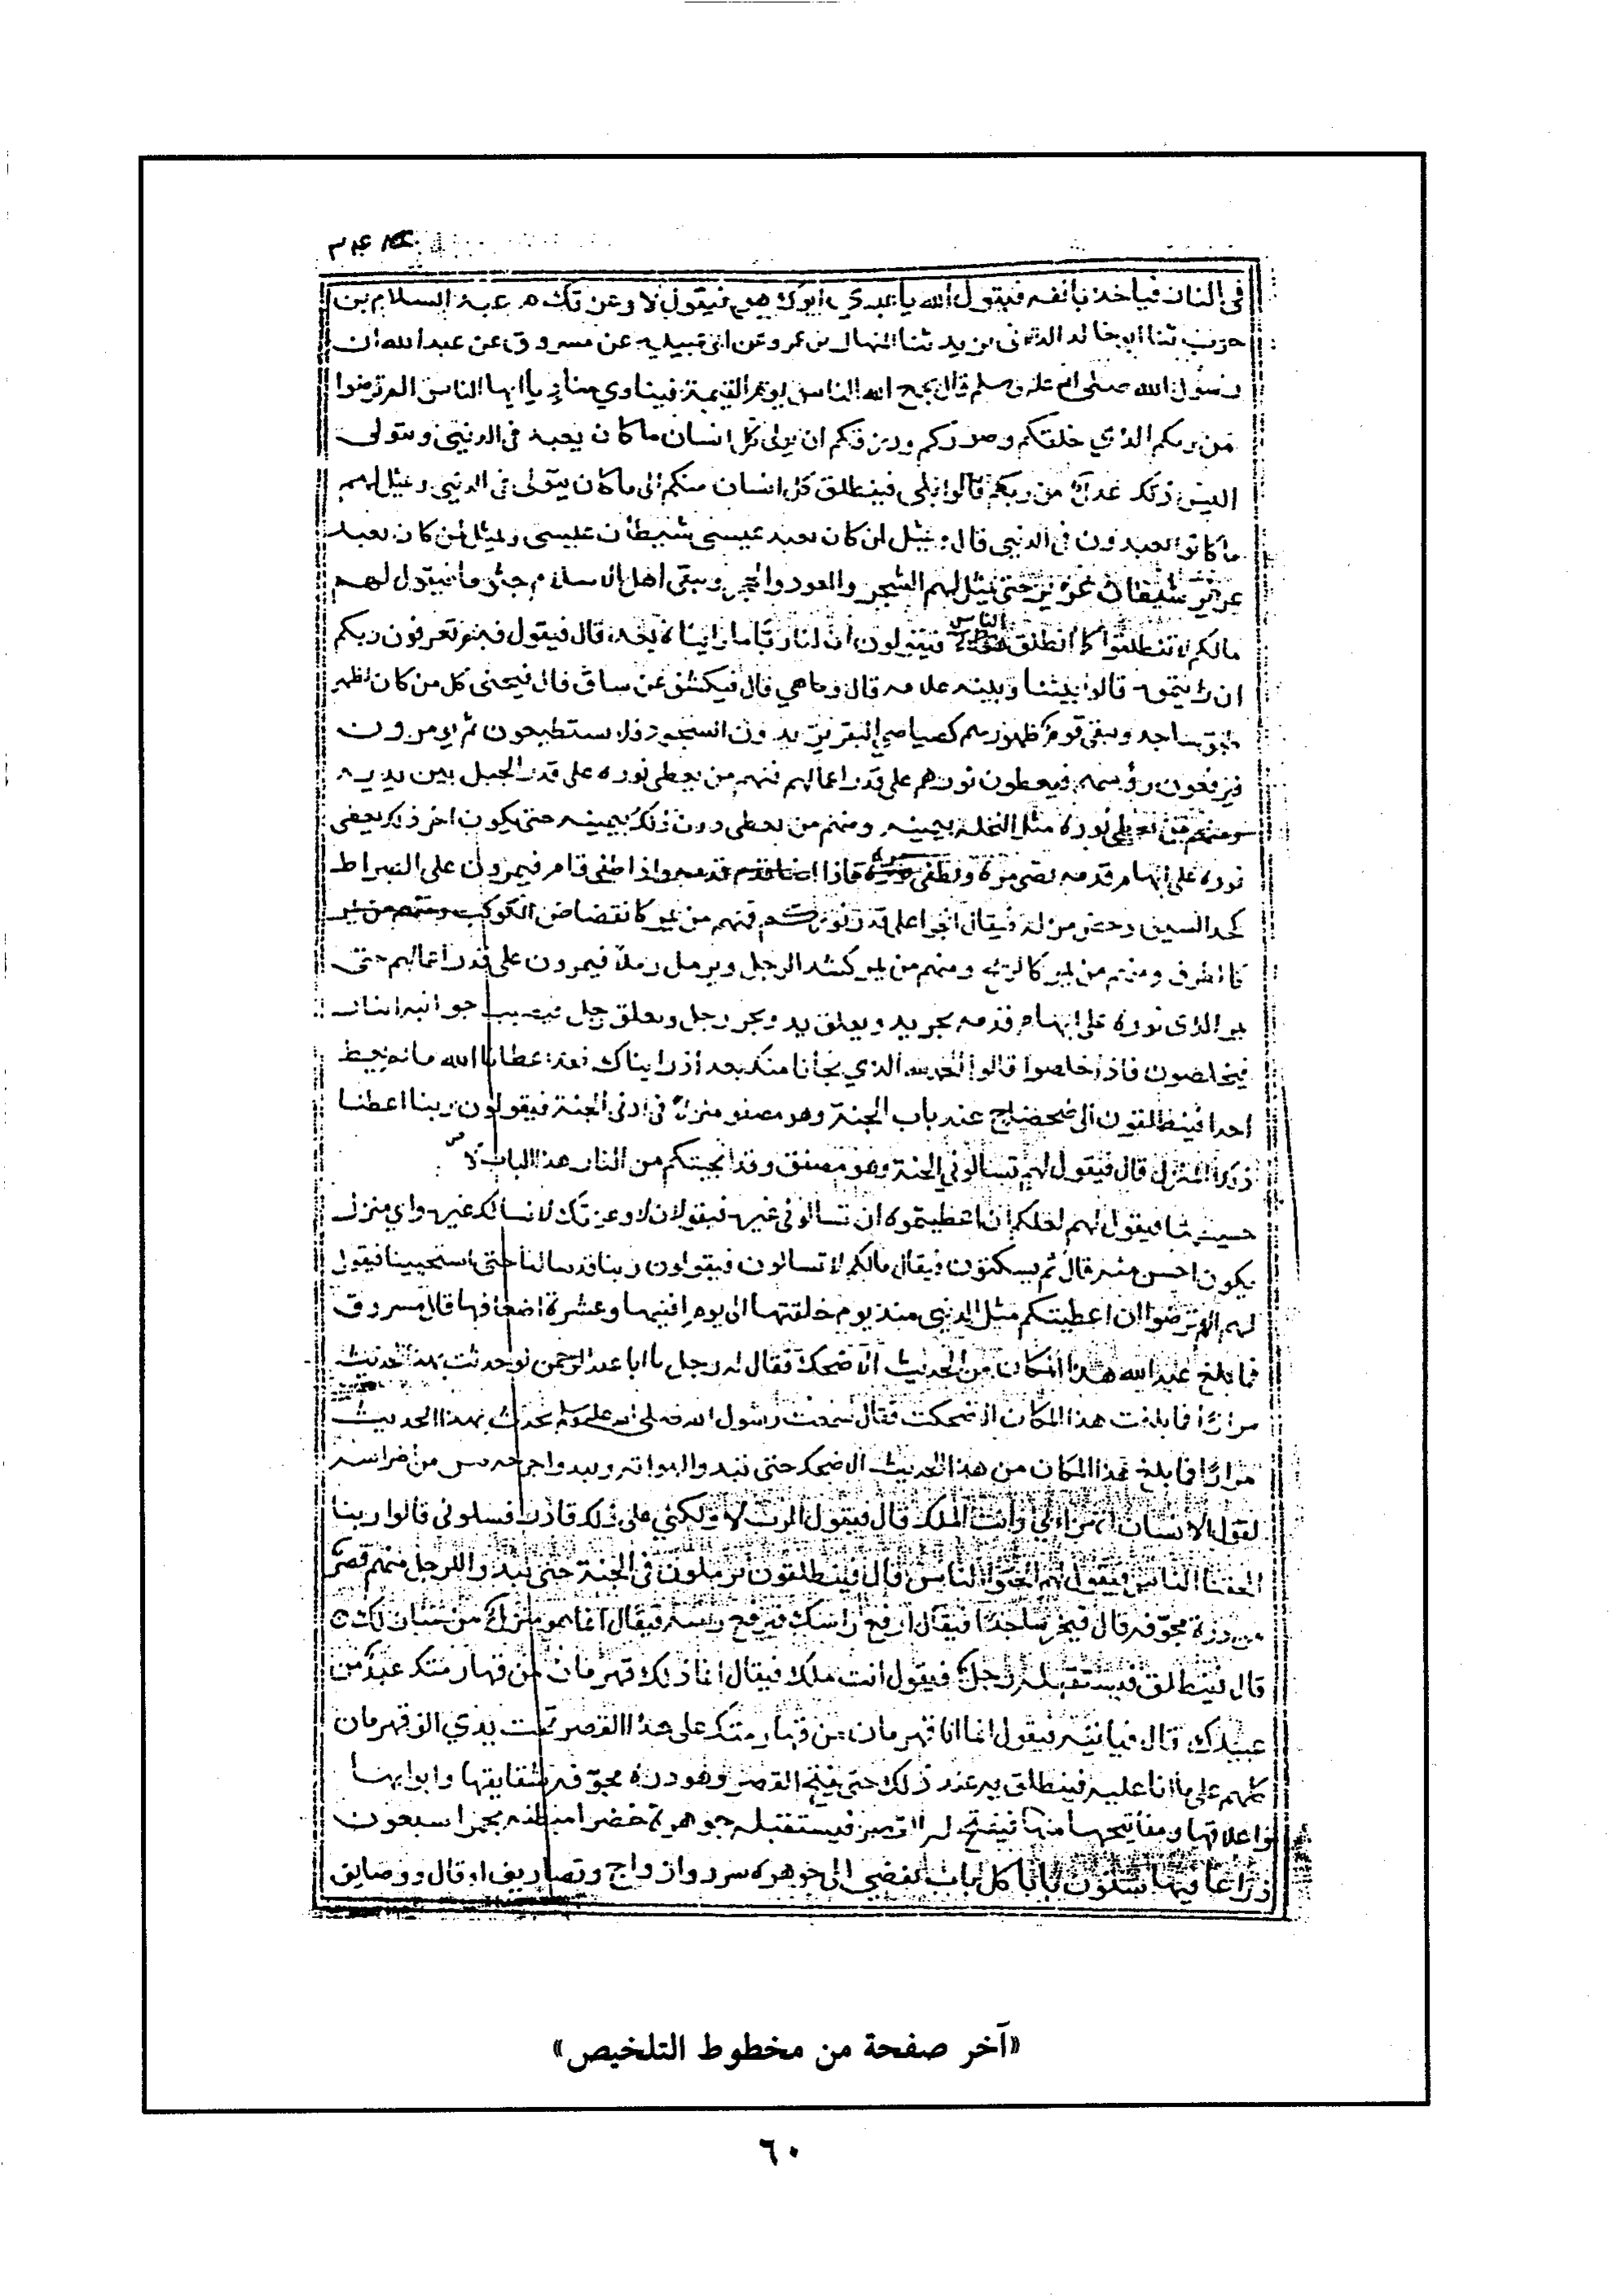 في النار فياخذ بانفه فيقول الله يا عبدي ابوك هو فيقول لا وعزتك عبد السلام بن
حرب ثنا ابو خالد الدالاني يزيد ثنا المنهال بن عمرو عن ابي عبيدة عن مسروق عن عبد الله ان
رسول الله صلى الله عليه وسلم قال يجمع الله الناس يوم القيمة فينادي مناد يا ايها الناس الم ترضوا
من ربكم الذي خلقكم وصوركم ورزقكم ان يولى كل انسان ما كان يعبد في الدنيى ويتولى
اليس ذلك عدل من ربكم قالوا بلى فينطلق كل انسان منكم الى ما كان يتولى في الدنيى ويمثل لهم
ما كانوا يعبدون في الدنيى قال ويمثل لمن كان يعبد عيسى شيطان عيسى ويمثل لمن كان يعبد
عزير شيطان عزير حتى يمثل لهم الشجر والعود والحجر ويبقى اهل الاسلام جثوما فيقول لهم
مالكم لا تنطلقوا كما انطلق الناس فيقولون ان لنا ربا ما راينا بعد قال فيقول فبم تعرفون ربكم
ان رايتموه قالوا بيننا وبينه علامه قال وما هي قال فيكشف عن ساق قال فيحنى كل من كان لظهر
ساجد ويبقى قوم ظهورهم كصياصي البقر يريدون السجود فلا يستطيعون ثم يومرون
فيرفعون رؤسهم فيعطون نورهم على قدر اعمالهم فمنهم من يعطى نوره على قدر الجبل بين يديه
ومنهم من يعطى نوره مثل النخلة بيمينه ومنهم من يعطى دون ذلك بيمينه حتى يكون اخر ذلك يعطى
نوره على ابهام قدمه يضئ مرة ويطفى مرة فاذا اضا قدم قدمه واذا طفى قام فيمرون على الصراط
كحد السيف دحض مزلة فيقال انجوا على قدر نوركم فمنهم من يمر كانقضاض الكوكب ومنهم من يمر
كالطرف ومنهم من يمر كالريح ومنهم من يمر كشد الرجل ويرمل رملا فيمرون على قدر اعمالهم حتى
يمر الذي نوره على ابهام قدمه يجر يد ويعلق يد ويجر رجل ويعلق رجل فتصيب جوانبه النار
فيخلصون فاذا خلصوا قالوا الحمد لله الذي نجانا منك بعد اذ رايناك فقد اعطانا الله ما لم يعط
احدا فينطلقون الى ضحضاح عند باب الجنة وهو مصفق منزلا في ادنى الجنة فيقولون ربنا اعطنا
ذلك المنزل قال فيقول لهم تسالوني الجنة وهو مصفق وقد انجيتكم من النار هذا الباب لا
حسيسها فيقول لهم لعلكم ان اعطيتموه ان تسالوني غيره فيقولان لا وعزتك لا نسالك غيره واي منزل
يكون احسن منه قال ثم يسكتون فيقال مالكم لا تسالون فيقولون ربنا قد سالنا حتى استحيينا فيقول
لهم الم ترضوا ان اعطيتكم مثل الدنيى منذ يوم خلقتها الى يوم افنيها وعشرة اضعافها قال مسروق
فما بلغ عبد الله هذا المكان من الحديث الا ضحك فقال له رجل يا ابا عبد الرحمن لو حدثت بهذا الحديث
مرارا فما بلغت هذا المكان الا ضحكت فقال سمعت رسول الله صلى الله عليه وسلم يحدث بهذا الحديث
مرارا فما بلغ هذا المكان من هذا الحديث الا ضحك حتى تبدو لهواته ويبدو اخر ضرس من اضراسه
لقول الانسان اتهزا بي وانت الملك قال فيقول الرب لا ولكني على ذلك قادر فسلوني قالوا ربنا
الحقنا الناس فيقول لهم الحقوا الناس قال فينطلقون يرملون في الجنة حتى يبدو للرجل منهم قصر
من درة مجوفة قال فيخر ساجدا فيقال ارفع راسك فيرفع راسه فيقال انما هو منزل من منازلك
قال فينطلق فيستقبله رجل فيقول انت ملك فيقال انما ذلك قهرمان من قهارمتك عبد من
عبيدك قال فياتيه فيقول انما انا قهرمان من قهارمتك على هذا القصر تحت يدي الف قهرمان
كلهم على ما انا عليه فينطلق به عند ذلك حتى يفتح القصر وهو درة مجوفة سقايفها وابوابها
واغلاقها ومفاتيحها منها فيفتح له القصر فيستقبله جوهرة خضرا مبطنه بحمرا سبعون
ذراعا فيها ستون بابا كل باب يفضي الى جوهره سرر وازواج وتصاريف او قال ووصايف
«آخر صفحة من مخطوط التلخيص»
٦٠